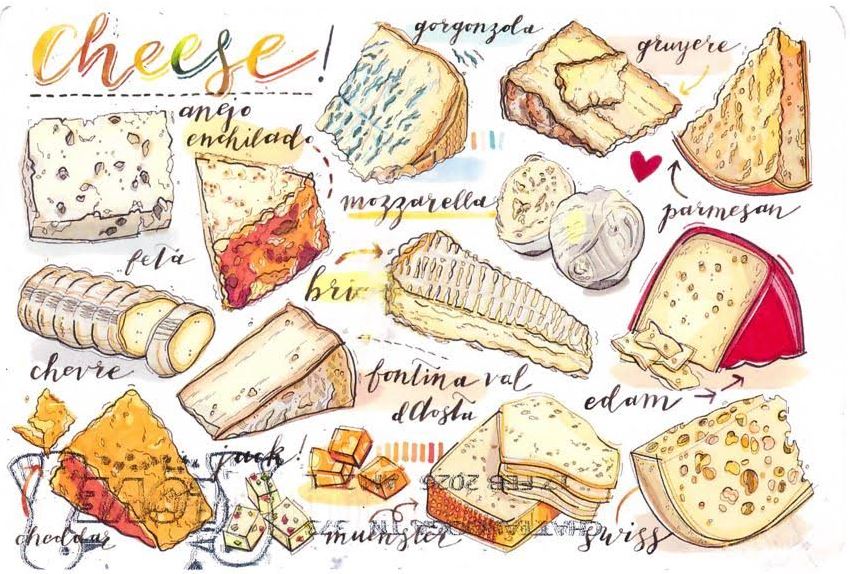 Cheese!
gorgonzola
gruyere
anejo
enchilado
mozzarella
parmesan
feta
brie
chevre
fontina val
d'Aosta
edam
jack!
17 FEB 2026
cheddar
muenster
swiss